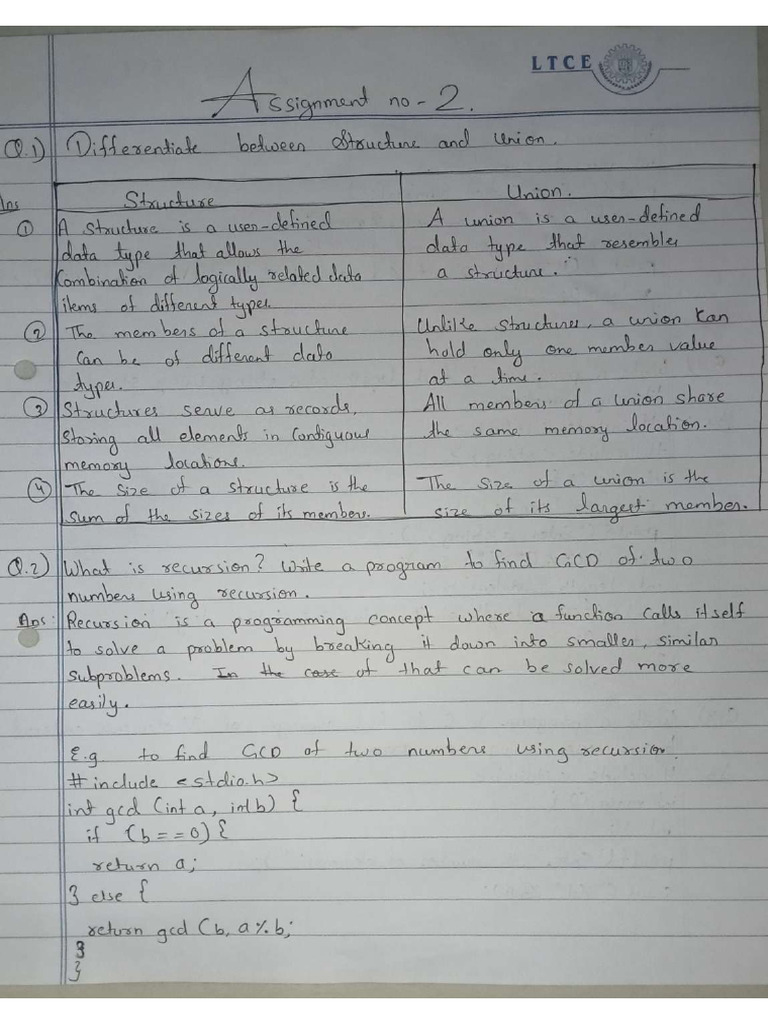 LTCE
Assignment no - 2.
Q.1) Differentiate between Structure and Union.
Ans
Structure
Union.
① A structure is a user-defined
data type that allows the
Combination of logically related data
items of different types.
A union is a user-defined
data type that resembles
a structure.
② The members of a structure
Can be of different data
types.
Unlike structures, a union can
hold only one member value
at a time.
③ Structures serve as records,
storing all elements in contiguous
memory locations.
All members of a union share
the same memory location.
④ The size of a structure is the
sum of the sizes of its members.
The size of a union is the
size of its largest member.
Q.2) What is recursion? Write a program to find GCD of two
numbers using recursion.
Ans: Recursion is a programming concept where a function calls itself
to solve a problem by breaking it down into smaller, similar
subproblems. In the case of that can be solved more
easily.
E.g. to find GCD of two numbers using recursion
# include <stdio.h>
int gcd (int a, int b) {
if (b == 0) {
return a;
} else {
return gcd (b, a % b;
}
}